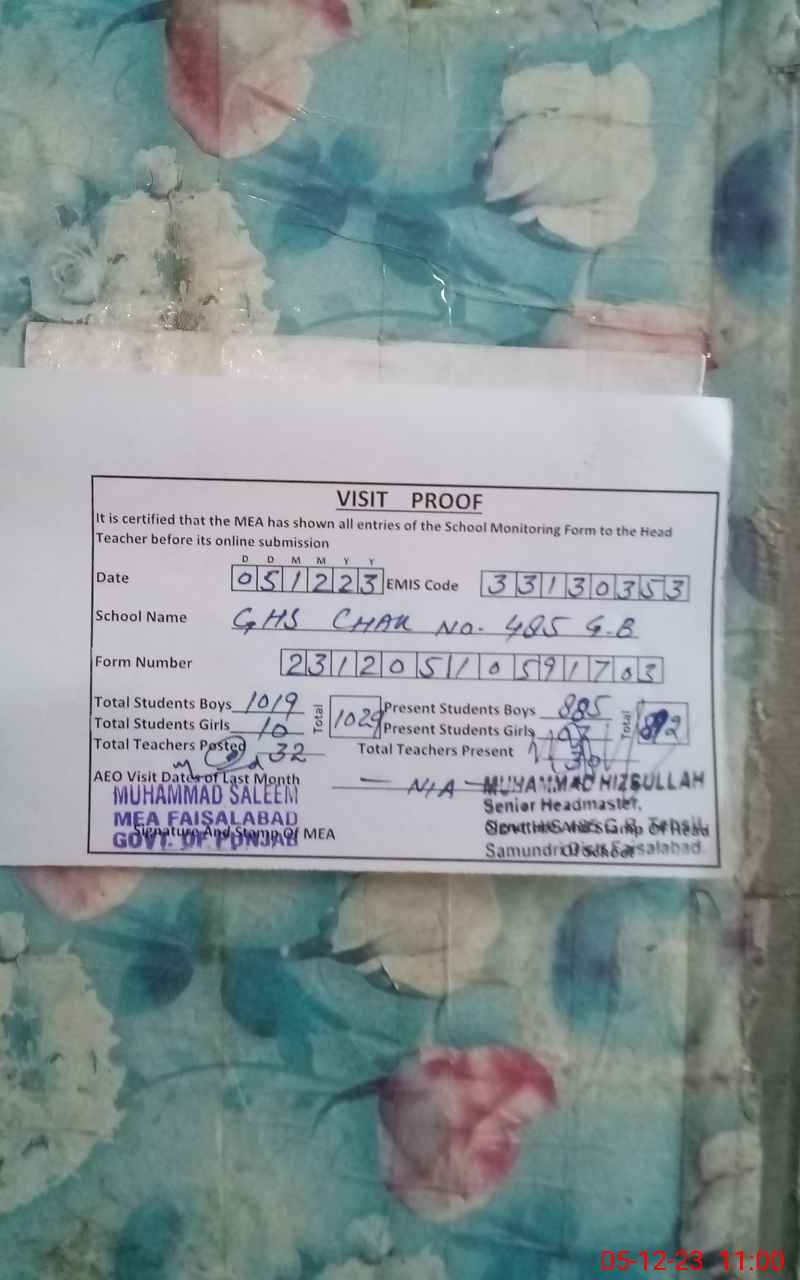 VISIT PROOF
It is certified that the MEA has shown all entries of the School Monitoring Form to the Head
Teacher before its online submission
D D M M Y Y
Date 051223 EMIS Code 33130353
School Name GHS CHAK NO. 485 G.B
Form Number 23120510591703
Total Students Boys 1019 Total 1029 Present Students Boys 885 Total
Total Students Girls 10 Present Students Girls
Total Teachers Posted 32 Total Teachers Present
AEO Visit Dates of Last Month — N/A —
MUHAMMAD SALEEM
MEA FAISALABAD
GOVT. OF PUNJAB
Signature And Stamp Of MEA
MUHAMMAD HIZBULLAH
Senior Headmaster,
Samundri Faisalabad.
05-12-23 11:00